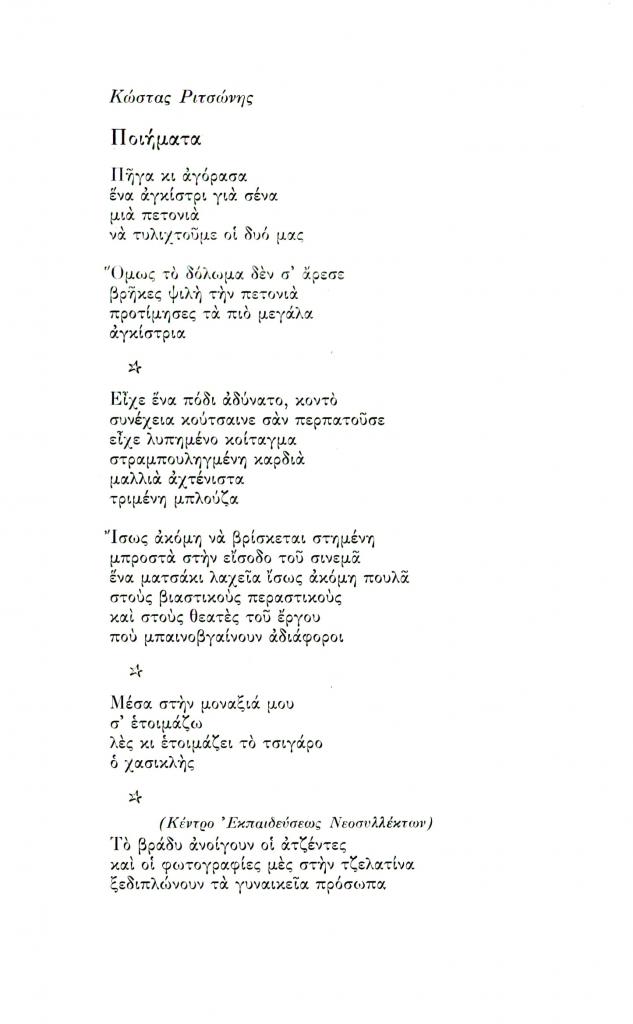 Κώστας Ριτσώνης
Ποιήματα
Πῆγα κι ἀγόρασα
ἕνα ἀγκίστρι γιὰ σένα
μιὰ πετονιὰ
νὰ τυλιχτοῦμε οἱ δυό μας
Ὅμως τὸ δόλωμα δὲν σ' ἄρεσε
βρῆκες ψιλὴ τὴν πετονιὰ
προτίμησες τὰ πιὸ μεγάλα
ἀγκίστρια
☆
Εἶχε ἕνα πόδι ἀδύνατο, κοντὸ
συνέχεια κούτσαινε σὰν περπατοῦσε
εἶχε λυπημένο κοίταγμα
στραμπουληγμένη καρδιὰ
μαλλιὰ ἀχτένιστα
τριμένη μπλούζα
Ἴσως ἀκόμη νὰ βρίσκεται στημένη
μπροστὰ στὴν εἴσοδο τοῦ σινεμᾶ
ἕνα ματσάκι λαχεῖα ἴσως ἀκόμη πουλᾶ
στοὺς βιαστικοὺς περαστικοὺς
καὶ στοὺς θεατὲς τοῦ ἔργου
ποὺ μπαινοβγαίνουν ἀδιάφοροι
☆
Μέσα στὴν μοναξιά μου
σ' ἑτοιμάζω
λὲς κι ἑτοιμάζει τὸ τσιγάρο
ὁ χασικλὴς
☆
(Κέντρο Ἐκπαιδεύσεως Νεοσυλλέκτων)
Τὸ βράδυ ἀνοίγουν οἱ ἀτζέντες
καὶ οἱ φωτογραφίες μὲς στὴν τζελατίνα
ξεδιπλώνουν τὰ γυναικεῖα πρόσωπα